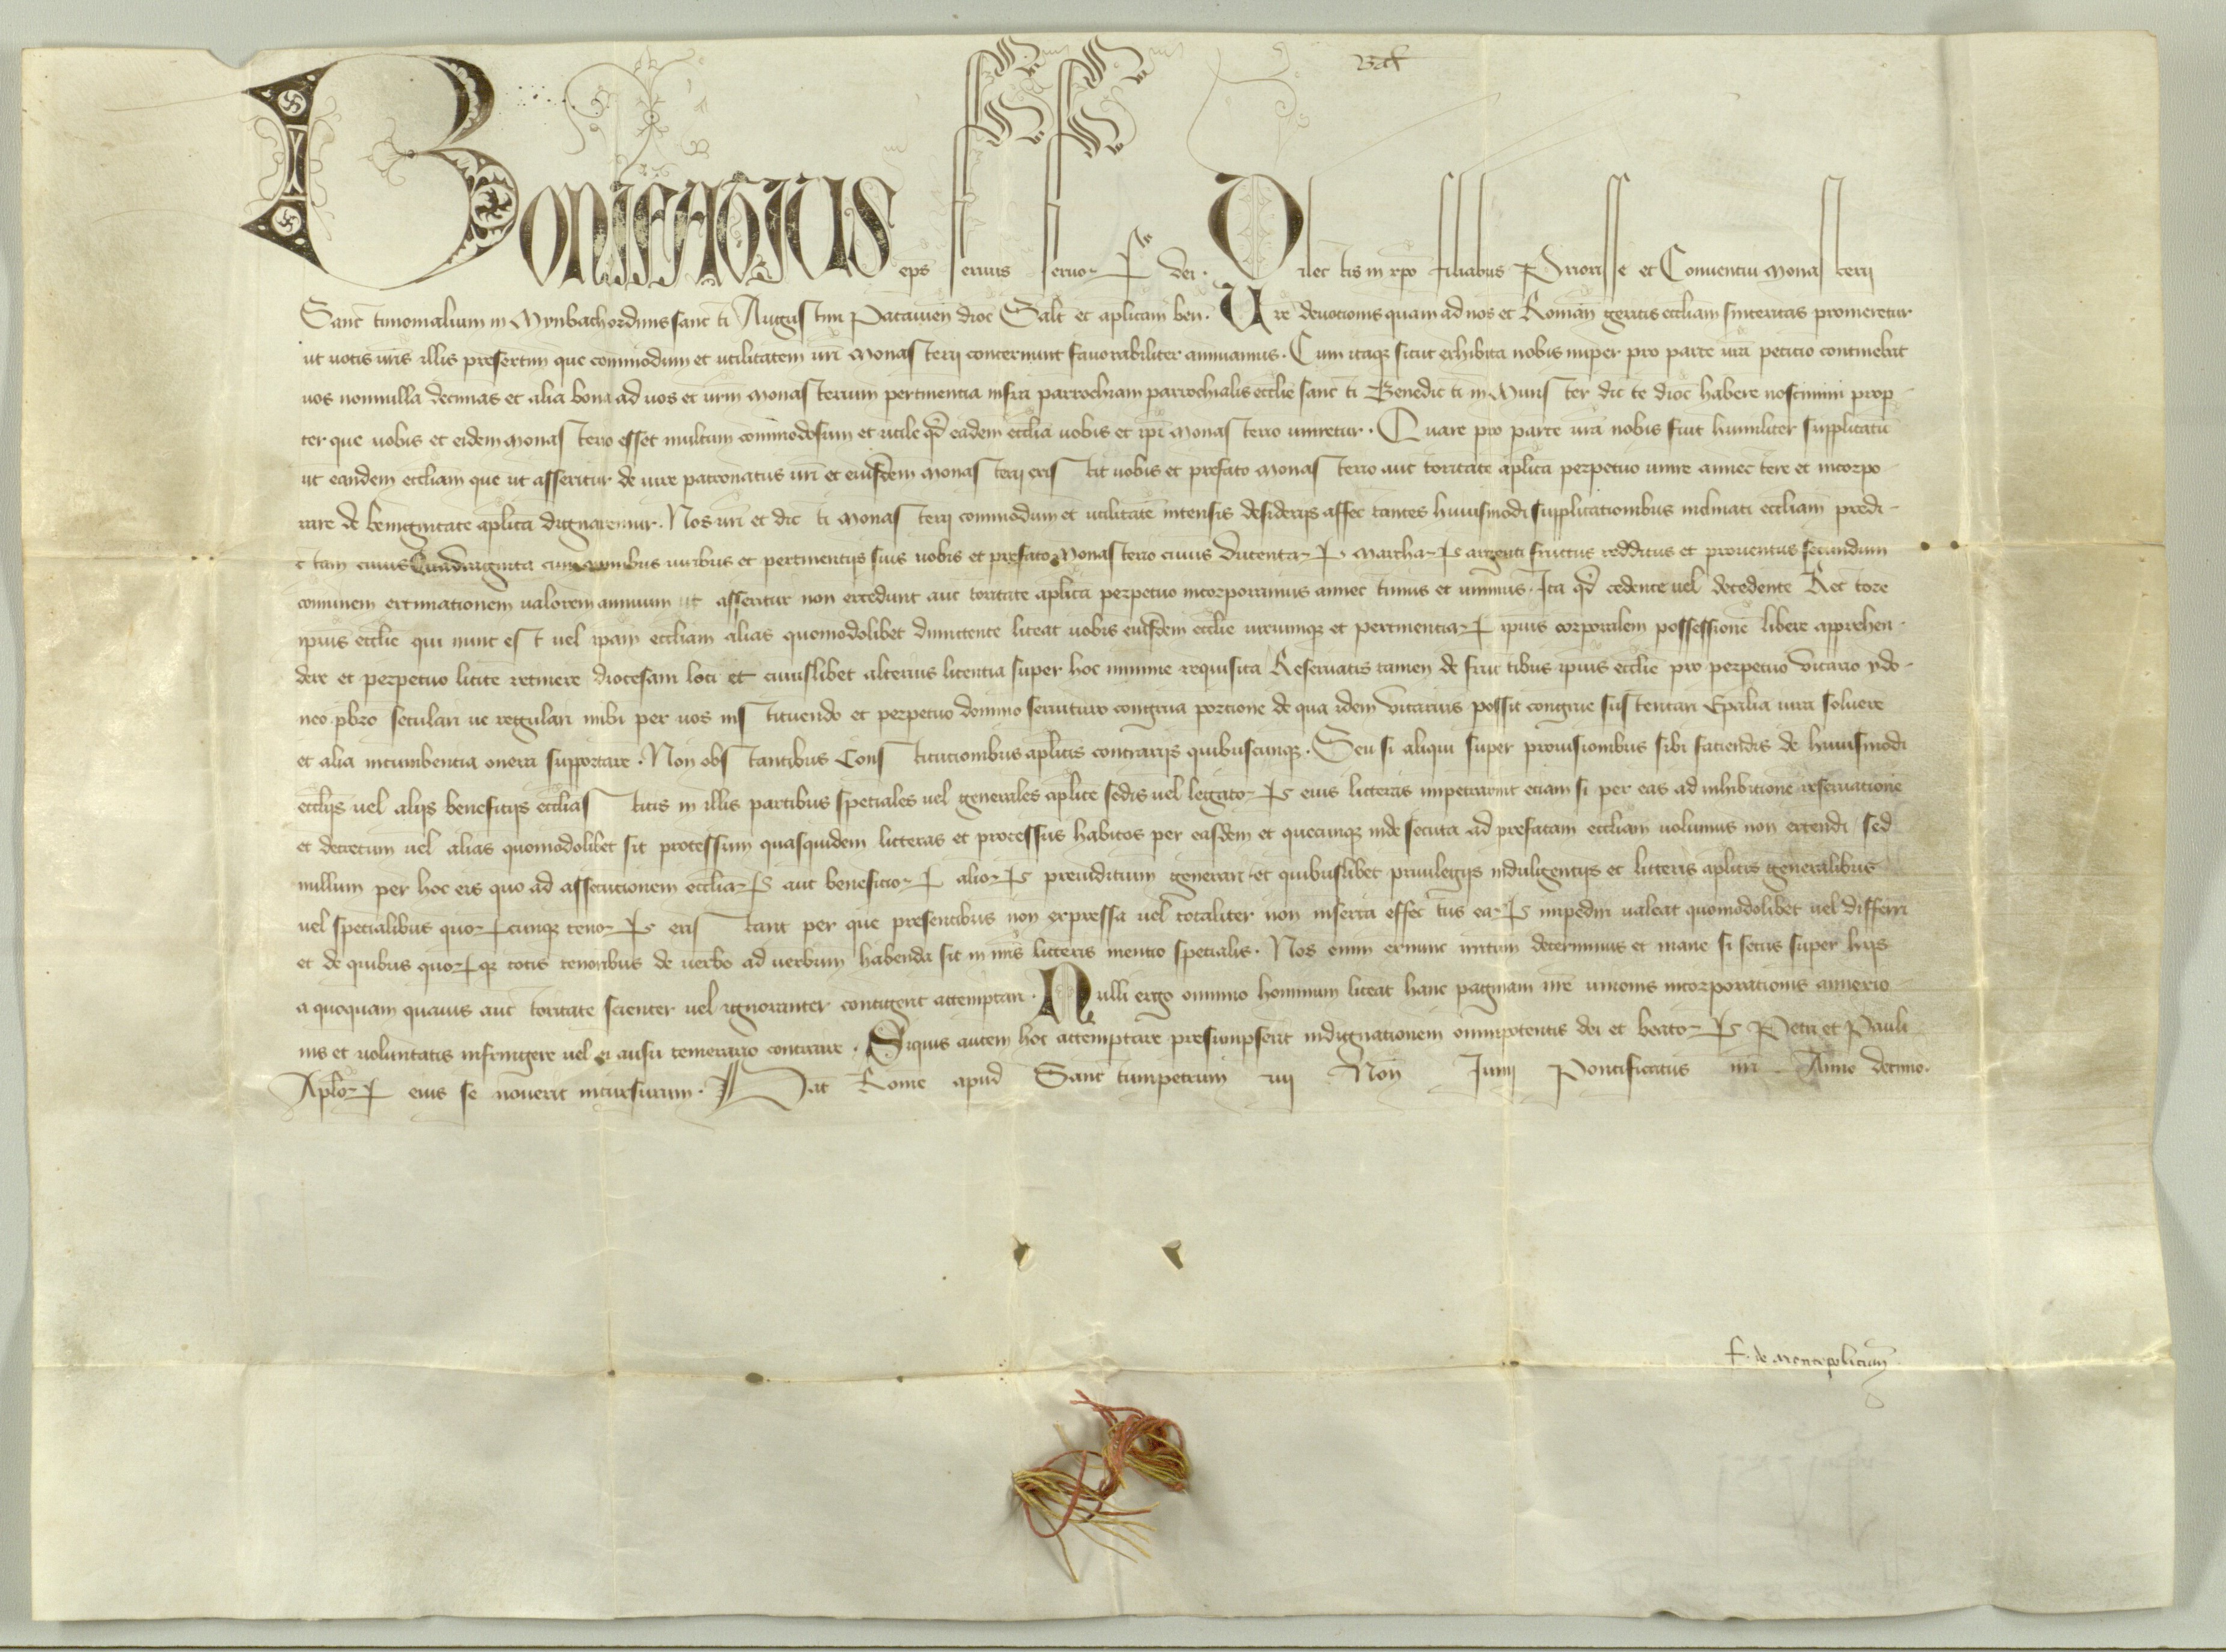 Vacat
Bonifacius eps seruus seruor dei. Dilectis in xpo filiabus Priorisse et Conuentui Monasterij
Sanctimonialium in Mynbach ordinis sancti Augustini Patauien dioc Salt et aplicam ben. Ure deuotionis quam ad nos et Romanam geritis eccliam sinceritas promeretur
ut uotis uris illis presertim que commodum et utilitatem uri Monasterij concernunt fauorabiliter annuamus. Cum itaqz sicut exhibita nobis nuper pro parte ura peticio continebat
uos nonnulla decimas et alia bona ad uos et urm Monasterium pertinentia infra parrochiam parrochialis ecclie sancti Benedicti in Munster dicte dioc habere noscimini prop
ter que uobis et eidem Monasterio esset multum commodosum et utile qd eadem ecclia uobis et ipi Monasterio uniretur. Quare pro parte ura nobis fuit humiliter supplicatu
ut eandem eccliam que ut asseritur de iure patronatus uri et eiusdem Monasterij existit uobis et prefato Monasterio auctoritate aplica perpetuo unire annectere et incorpo
rare de benignitate aplica dignaremur. Nos uri et dicti Monasterij commodum et utilitate intensis desiderijs affectantes huiusmodi supplicationibus inclinati eccliam predi
ctam cuius Quadraginta cum omnibus iuribus et pertinentijs suis uobis et prefato Monasterio cuius Ducentar Marchar argenti fructus redditus et prouentus secundum
comunem extimationem ualorem annuum ut asseritur non excedunt auctoritate aplica perpetuo incorporamus annectimus et unimus. Ita qd cedente uel decedente Rectore
ipius ecclie qui nunc est uel ipam eccliam alias quomodolibet dimittente liceat uobis eiusdem ecclie iuriumqz et pertinentiar ipius corporalem possessione libere apprehen
dere et perpetuo licite retinere diocesani loci et cuiuslibet alterius licentia super hoc minime requisita Reseruatis tamen de fructibus ipius ecclie pro perpetuo Vicario ydo
neo pbro seculari ue regulari inibi per uos instituendo et perpetuo domino seruituro congrua portione de qua idem Vicarius possit congrue sustentari Epalia iura soluere
et alia incumbentia onera supportare. Non obstantibus Constitutionibus aplicis contrarijs quibuscunqz. Seu si aliqui super prouisionibus sibi faciendis de huiusmodi
ecclijs uel alijs beneficijs ecclasticis in illis partibus speciales uel generales aplice sedis uel legator eius litteras impetrarint etiam si per eas ad inhibitione reseruatione
et decretum uel alias quomodolibet sit processum quasquidem litteras et processus habitos per easdem et quecunqz inde secuta ad prefatam eccliam uolumus non extendi sed
nullum per hoc eis quo ad assecutionem eccliar aut beneficior alior preiudicium generari et quibuslibet priuilegijs indulgentijs et litteris aplicis generalibus
uel specialibus quorcunqz tenor existant per que presentibus non expressa uel totaliter non inserta effectus ear impediri ualeat quomodolibet uel differri
et de quibus quorqz totis tenoribus de uerbo ad uerbum habenda sit in nris litteris mentio specialis. Nos enim exnunc irritum decernimus et inane si secus super hijs
a quoquam quauis auctoritate scienter uel ignoranter contigerit attemptari. Nulli ergo omnino hominum liceat hanc paginam nre unionis incorporationis annexio
nis et uoluntatis infringere uel ei ausu temerario contraire. Siquis autem hoc attemptare presumpserit indignationem omnipotentis dei et beator Petri et Pauli
Aplor eius se nouerit incursurum. Dat Rome apud Sanctumpetrum iiij Non Junij Pontificatus nri Anno decimo.
F. de Montepolitian